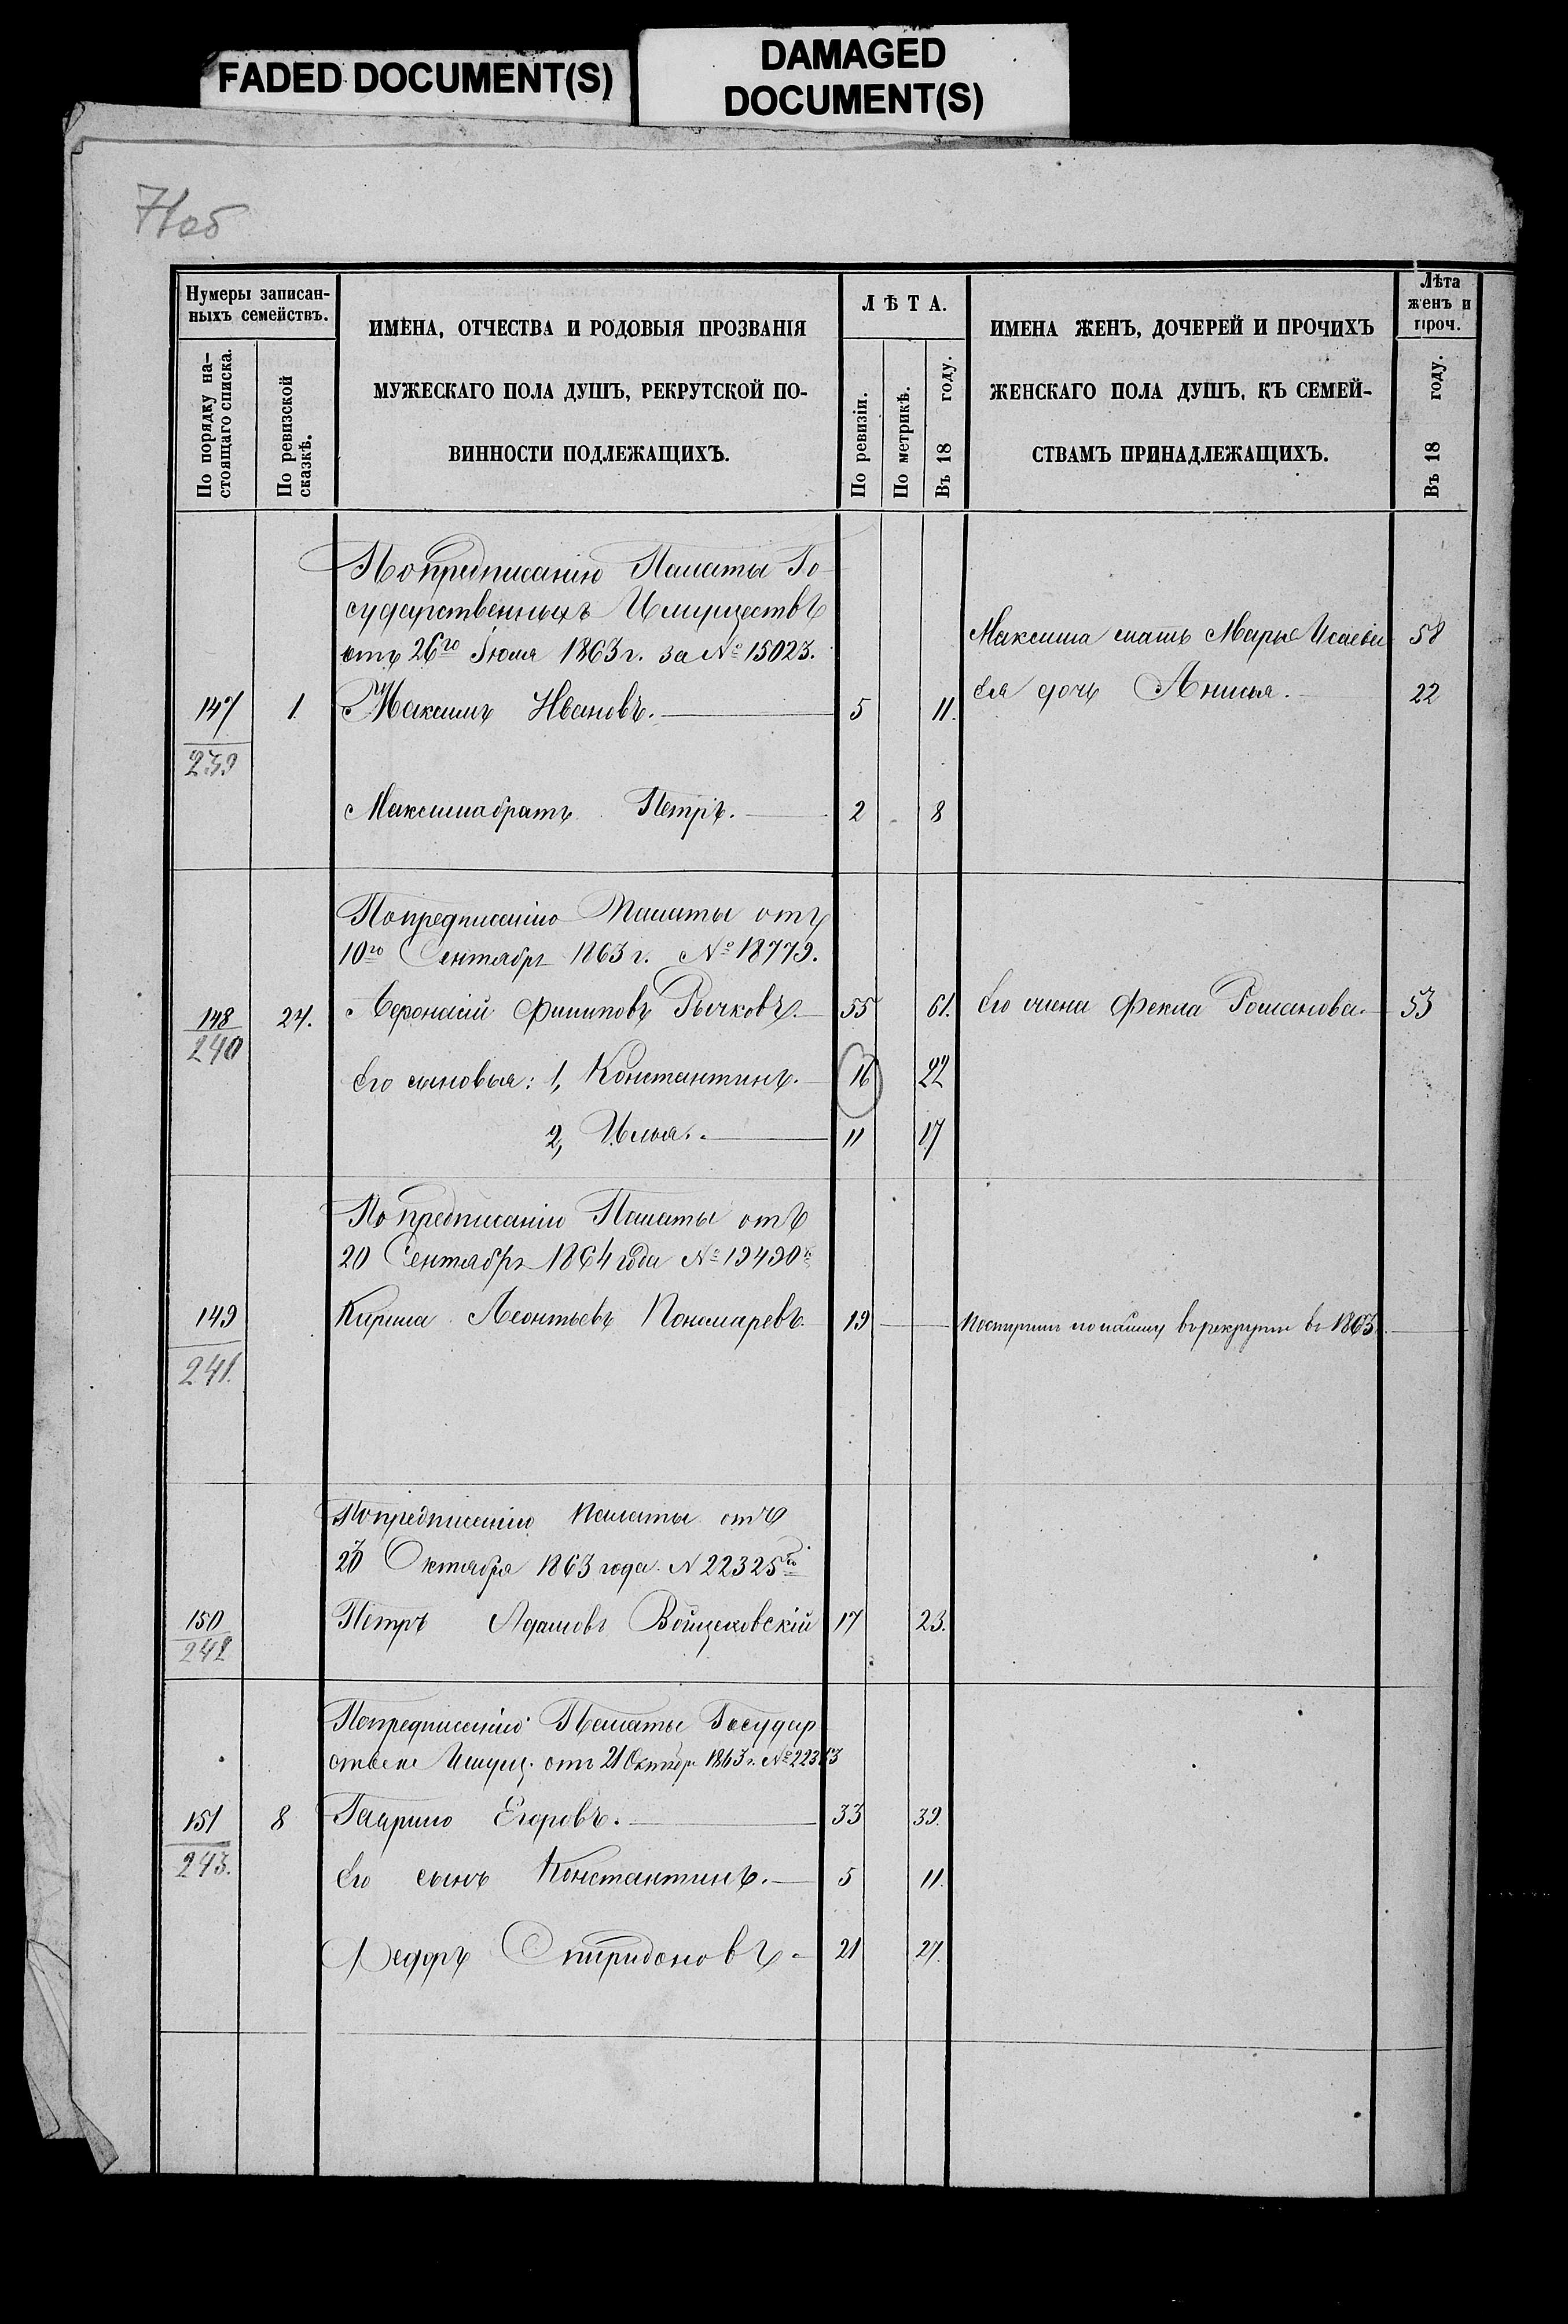 FADED DOCUMENT(S)
DAMAGED
DOCUMENT(S)
71об
Нумеры записан-
ныхъ семействъ.
По порядку на-
стоящаго списка.
По ревизской
сказкѣ.
ИМЕНА, ОТЧЕСТВА И РОДОВЫЯ ПРОЗВАНІЯ
МУЖЕСКАГО ПОЛА ДУШЪ, РЕКРУТСКОЙ ПО-
ВИННОСТИ ПОДЛЕЖАЩИХЪ.
ЛѢТА.
По ревизіи.
По метрикѣ.
Въ 18 году.
ИМЕНА ЖЕНЪ, ДОЧЕРЕЙ И ПРОЧИХЪ
ЖЕНСКАГО ПОЛА ДУШЪ, КЪ СЕМЕЙ-
СТВАМЪ ПРИНАДЛЕЖАЩИХЪ.
Лѣта
женъ и
проч.
Въ 18 году.
По предписанію Палаты Го-
сударственныхъ Имуществъ
отъ 26го Іюля 1863 г. за № 15023.
Максима мать Марья Исаева 58
147 1. Максимъ Ивановъ. 5 11.
Ея дочь Анисья. 22
239
Максима братъ Петръ. 2 8
По предписанію Палаты отъ
10го Сентября 1863 г. № 18779.
148 24. Афонасій Филиповъ Рычковъ. 55 61. Его жена Фекла Романова. 53
240
Его сыновья: 1, Константинъ. 16 22
2, Илья. 11 17
По предписанію Палаты отъ
20 Сентября 1864 года № 19490
149 Кирила Леонтьевъ Пономаревъ. 19 Поступилъ по найму въ рекруты въ 1863.
241.
По предписанію Палаты отъ
Октября 1863 года. № 22325
150 Петръ Адамовъ Войцеховскій 17 23.
242
По предписанію Палаты Государ
ственн Имущ. отъ 21 Октябр 1863 г. №
151 8 Гаврило Егоровъ. 33 39.
243.
Его сынъ Константинъ. 5 11.
Федоръ Спиридоновъ. 21 27.